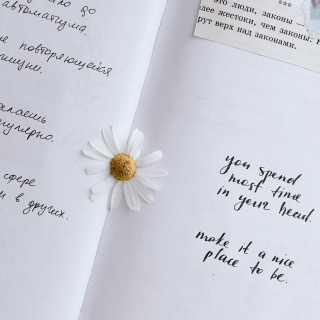 ло до
автоматизма.
не повторяющейся
регулярно.
сфере
и в других.
это люди, законы —
лее жестоки, чем законы.
рут верх над законами.
***
you spend
most time
in your head.
make it a nice
place to be.